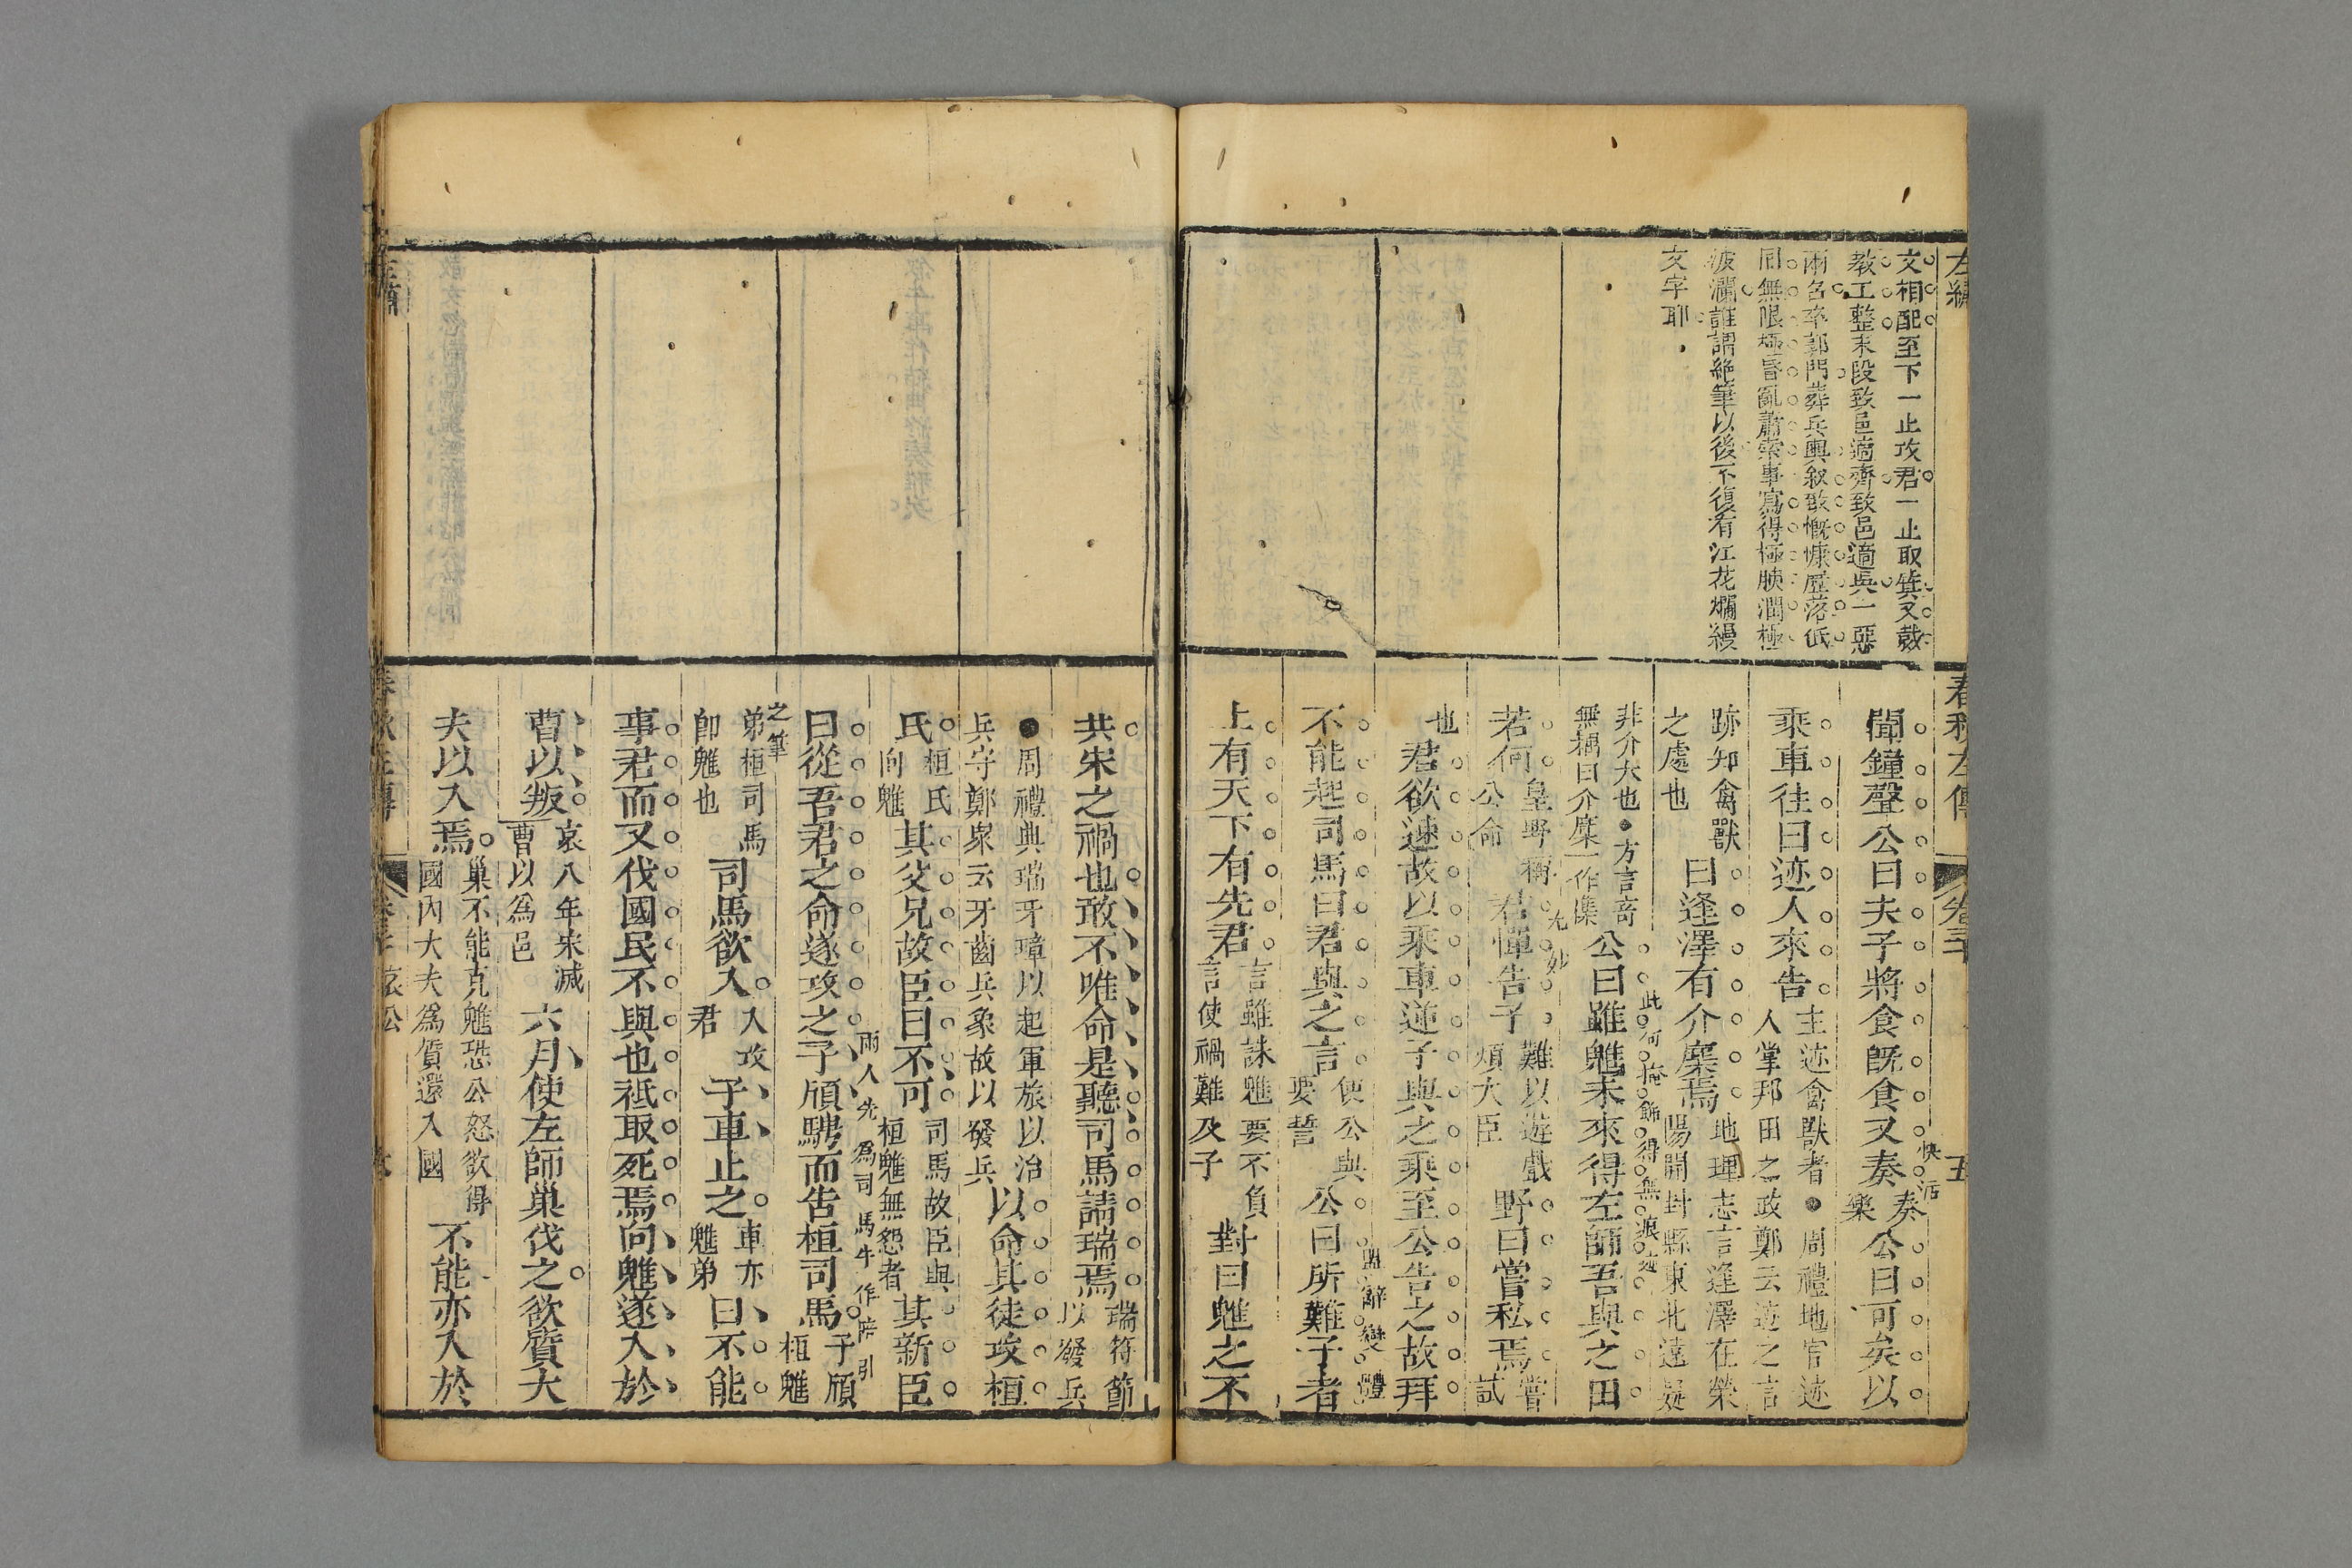 左繡
文相配至下一止攻君一止取筑又
教工整末段致邑適齊致邑適吳一惡
兩名卒郭門葬兵輿叙致慨慷歷落低
同無限極昏亂蕭索事寫得極腴潤極
波瀾誰謂絶筆以後不復有江花爛縵
文字耶
春秋左傳
卷三十
五
聞鐘聲公曰夫子將食旣食又奏
快活
奏
樂
公曰可矣以
乘車往曰迹人來告
主迹禽獸者●周禮地官迹
人掌邦田之政鄭云迹之言
跡知禽獸
之處也
曰逢澤有介麇焉
地理志言逢澤在榮
陽開封縣東北遠疑
非介大也●方言奇
無耦曰介麇一作麕
公曰雖魋未來得左師吾與之田
此何掩飾得無痕迹
若何
皇野稱
公命
君憚告子
尤妙
難以遊戲
煩大臣
野曰嘗私焉
嘗
試
也
君欲速故以乘車逆子與之乘至公告之故拜
不能起司馬曰君與之言
使公與
要誓
公曰所難子者
盟辭變體
上有天下有先君
言雖誅魋要不負
言使禍難及子
對曰魋之不
共宋之禍也敢不唯命是聽司馬請瑞焉
瑞符節
以發兵
●周禮典瑞牙璋以起軍旅以治
兵守鄭衆云牙齒兵象故以發兵
以命其徒攻桓
氏
桓氏
向魋
其父兄故臣曰不可
司馬故臣與
桓魋無怨者
其新臣
曰從吾君之命遂攻之子頎騁而告桓司馬
兩人先爲司馬牛作陪引
子頎
桓魋
之筆
弟桓司馬
卽魋也
司馬欲入
入攻
君
子車止之
車亦
魋弟
曰不能
事君而又伐國民不與也祗取死焉向魋遂入於
曹以叛
哀八年宋滅
曹以爲邑
六月使左師巢伐之欲質大
夫以入焉
巢不能克魋恐公怒欲得
國內大夫爲質還入國
不能亦入於
左繡
春秋左傳
哀公